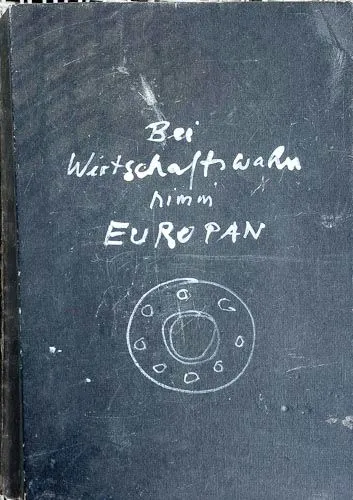 Bei
Wirtschaftswahn
nimm
EUROPAN